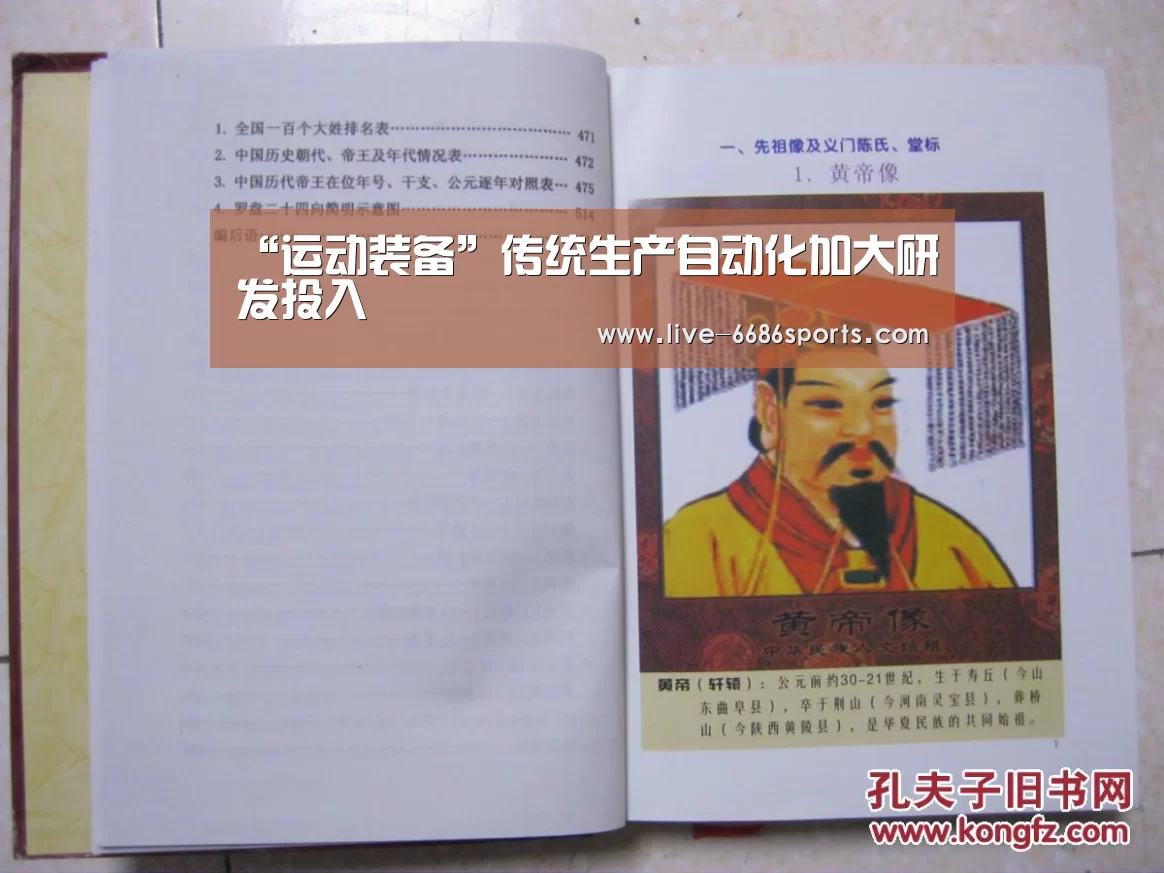 1. 全国一百个大姓排名表 471
2. 中国历史朝代、帝王及年代情况表 472
3. 中国历代帝王在位年号、干支、公元逐年对照表 475
4. 罗盘二十四向简明示意图 514
编后语
“运动装备”传统生产自动化加大研
发投入
www.live-6686sports.com
一、先祖像及义门陈氏、堂标
1. 黄帝像
黄帝像
中华民族人文始祖
黄帝（轩辕）：公元前约30-21世纪，生于寿丘（今山
东曲阜县），卒于荆山（今河南灵宝县），葬桥
山（今陕西黄陵县），是华夏民族的共同始祖。
1
孔夫子旧书网
www.kongfz.com